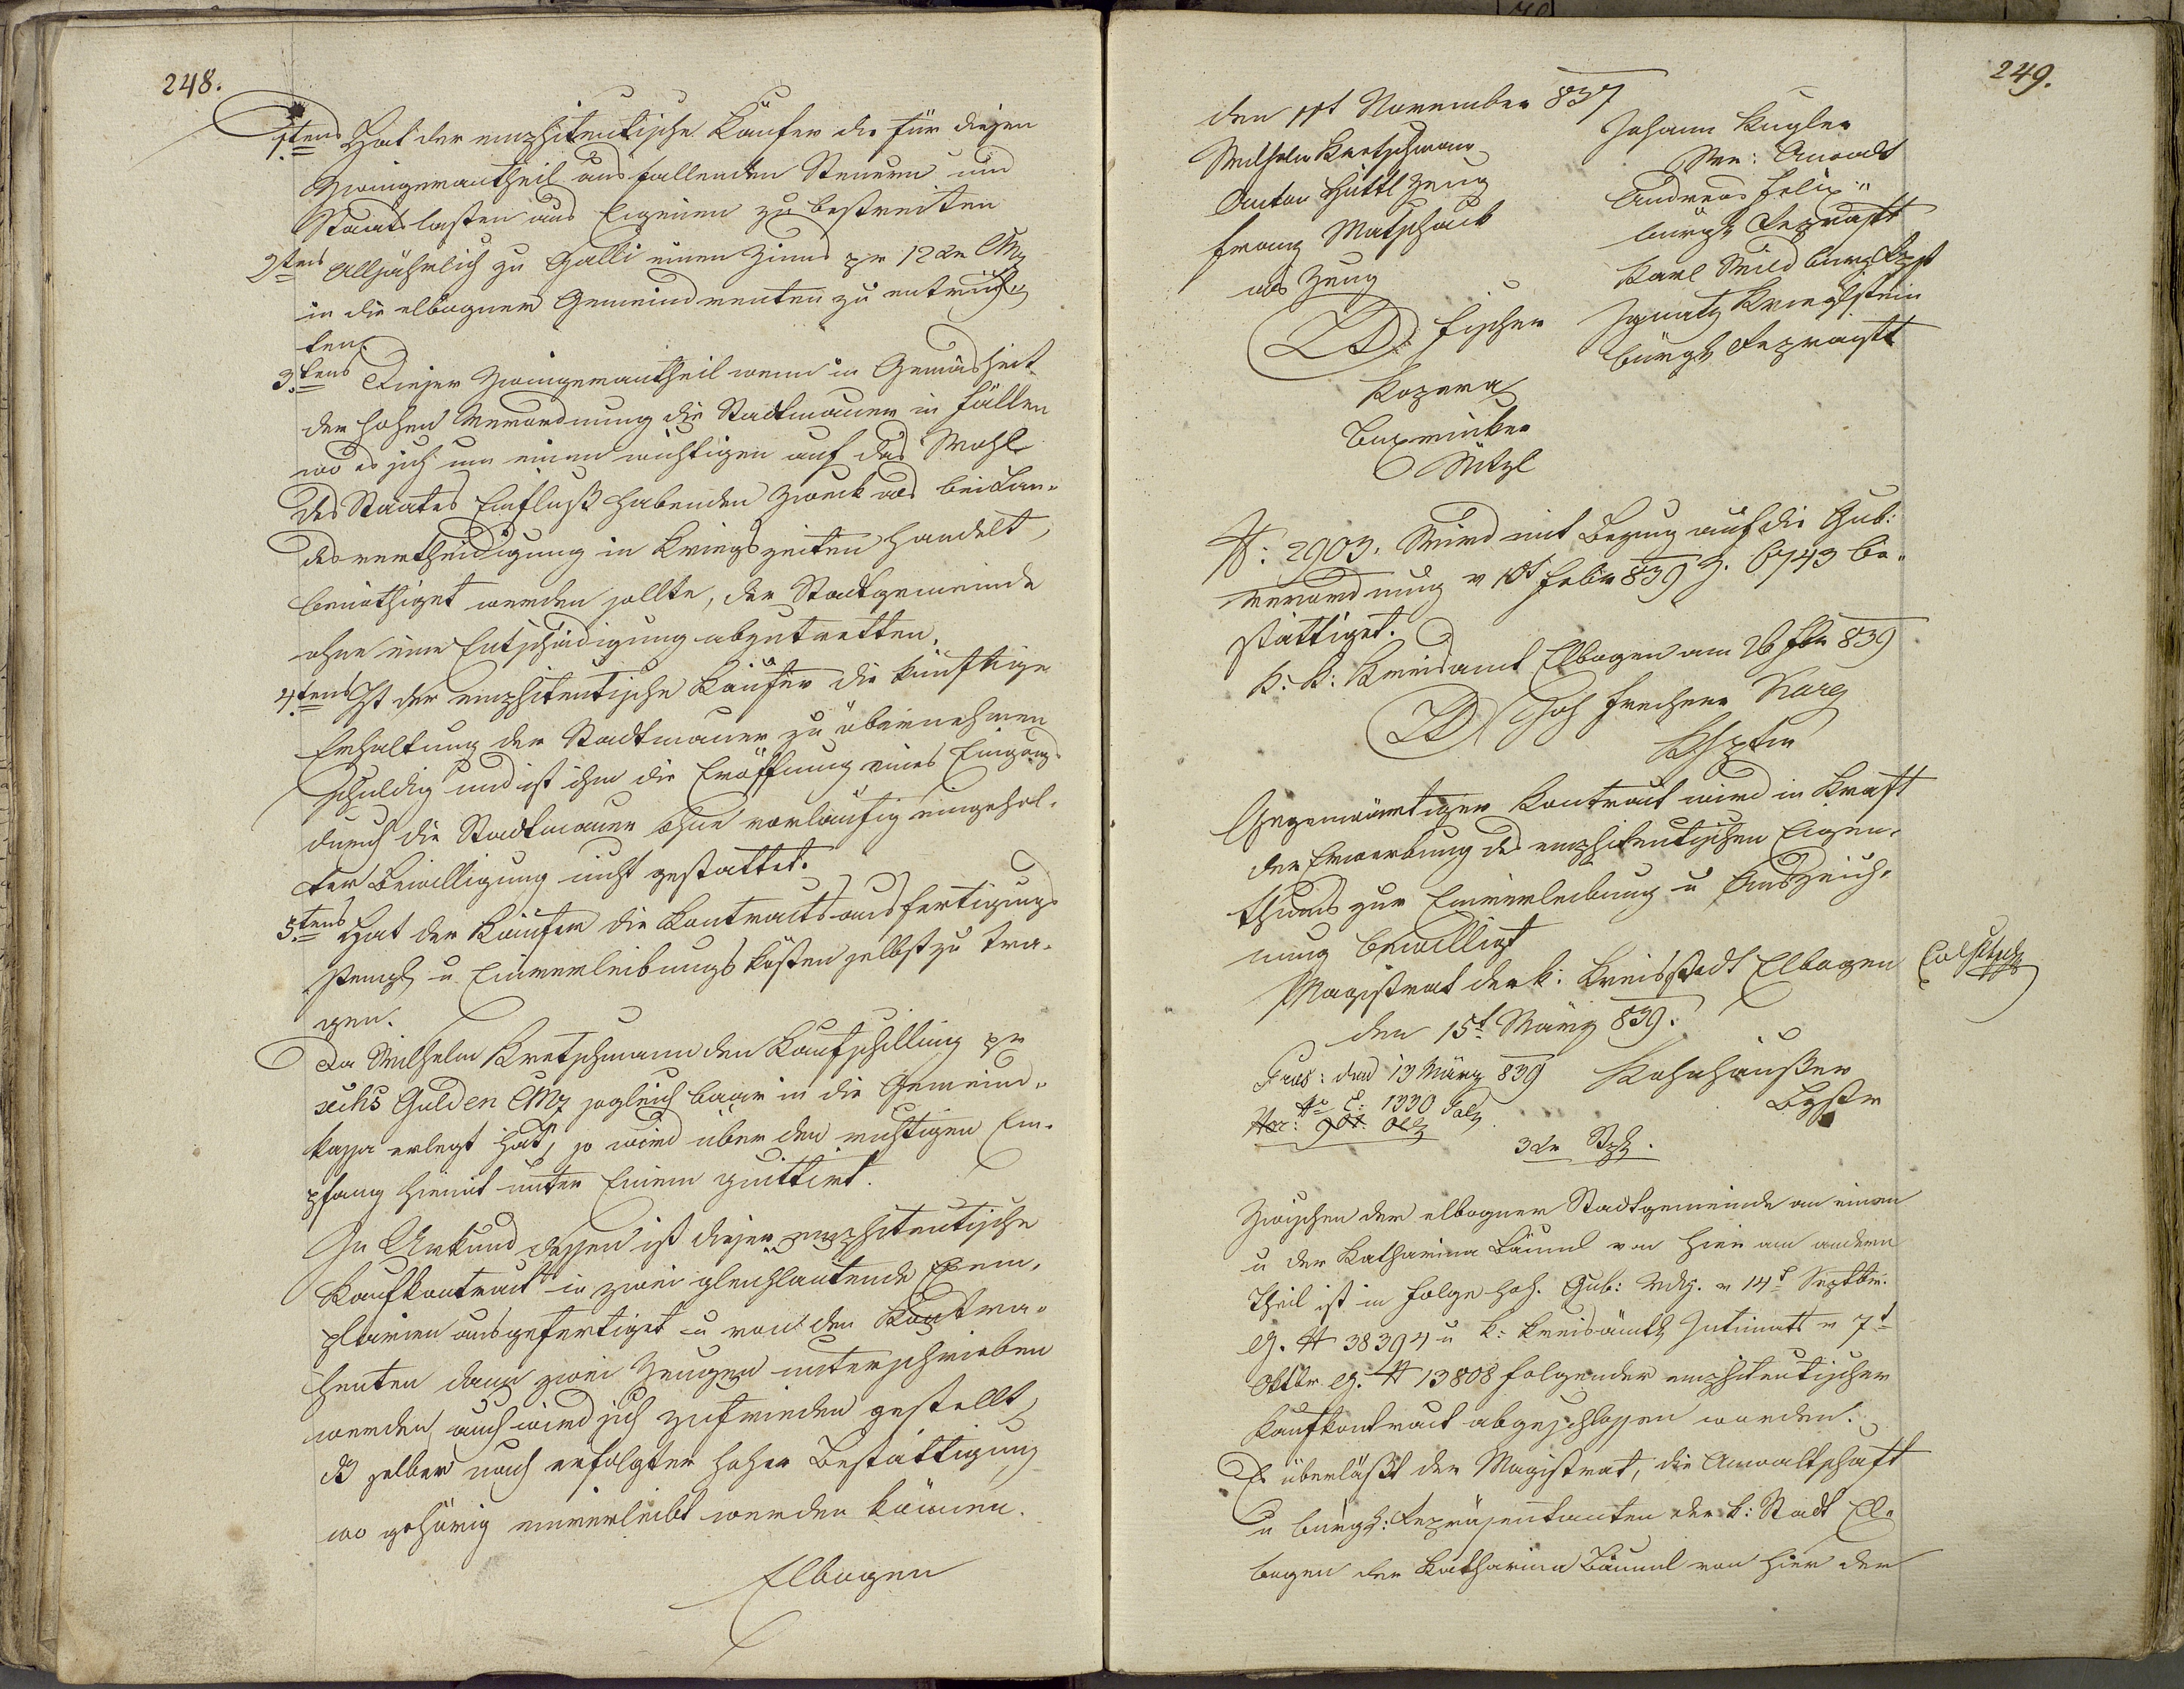 248.
1tens Hat der emphiteutische Käufer die für diesen
Zwingerantheil ausfallenden Steuern und
Staatslasten aus Eigenem zu bestreiten
2tens Alljährlich zu Galli einen Zins pr 12 xr CMz
in die elbogner Gemeindrenten zu entrich„
ten.
3tens Diesen Zwingerantheil wenn in Gemäsheit
der hohen Verordnung die Stadtmauer in Fällen
wo es sich um einen wichtigen auf das Wohl
des Staates Einfluß habenden Zweck als bei Lan-
desvertheidigung in Kriegszeiten handelt,
benöthiget werden sollte, der Stadtgemeinde
ohne eine Entschädigung abzutretten.
4tens Ist der emphiteutische Käufer die künftige
Erhaltung der Stadtmauer zu übernehmen
schuldig und ist ihm die Eröffnung eines Eingangs
durch die Stadtmauer ohne vorläufig eingehol-
ter Bewilligung nicht gestattet.
5tens Hat der Käufer die Kontraktsausfertigungs
Stempl u. Einverleibungskösten selbst zu tra-
gen.
Da Wilhelm Kretschmann den Kaufschilling pr
sechs Gulden CMz sogleich baar in die Gemeind-
kassa erlegt hat, so wird über den richtigen Em-
pfang hiemit unter Einem quittirt.
In Urkund dessen ist dieser emphiteutische
Kaufkontrakt in zwei gleichlautende Exem-
plarien ausgefertiget u von den Kontra-
henten dann zwei Zeugen unterschrieben
worden, auch wird sich zufrieden gestellt,
dß selber nach erfolgter hoher Bestättigung
wo gehörig einverleibt werden können.
Elbogen
249.
den 11t November 837
Wilhelm Kretschmann
Anton Hüttl Zeug
Franz Matschack
als Zeug
Fischer
Kopera
Miksl
Johann Kugler
Anwalt
Andreas Felix
bürgl Repräst
Karl Wild burgl Repst
Ignatz Krieglstein
bürgl Repräst
N: 2903. Wird mit Bezug auf die Gub:
Verordnung v 10t Febr 839 Z. 6743 be„
stättiget.
K: K: Kreisamt Elbogen am 26 Feb 839
Joh Freiherr Karg
Khptm
Gegenwärtiger Kontrakt wird in Kraft
der Erwerbung des emphiteutischen Eigen-
thums zur Einverleibung u Auszeich-
nung bewilligt
Magistrat der k: Kreisstadt Elbogen
den 15t März 839.
Präs: den 13 März 839
No E: 1330
Kohnhäußer
Bgstr
3 xr Stpl.
Zwischen der elbogner Stadtgemeinde an einen
u der Katharina Bäuml von hier am andern
Theil ist in Folge hoh. Gub: Vdg. v 14t Septbr.
Z. N 38394 u k: kreisämtl Intimats v 7t
Oktbr Z. N 13808 folgender emphiteutischer
Kaufkontrakt abgeschlossen worden.
Es überläßt der Magistrat, die Anwaltschaft
u bürgl: Repräsentanten der k: Stadt El-
bogen der Katharina Bäuml von hier der